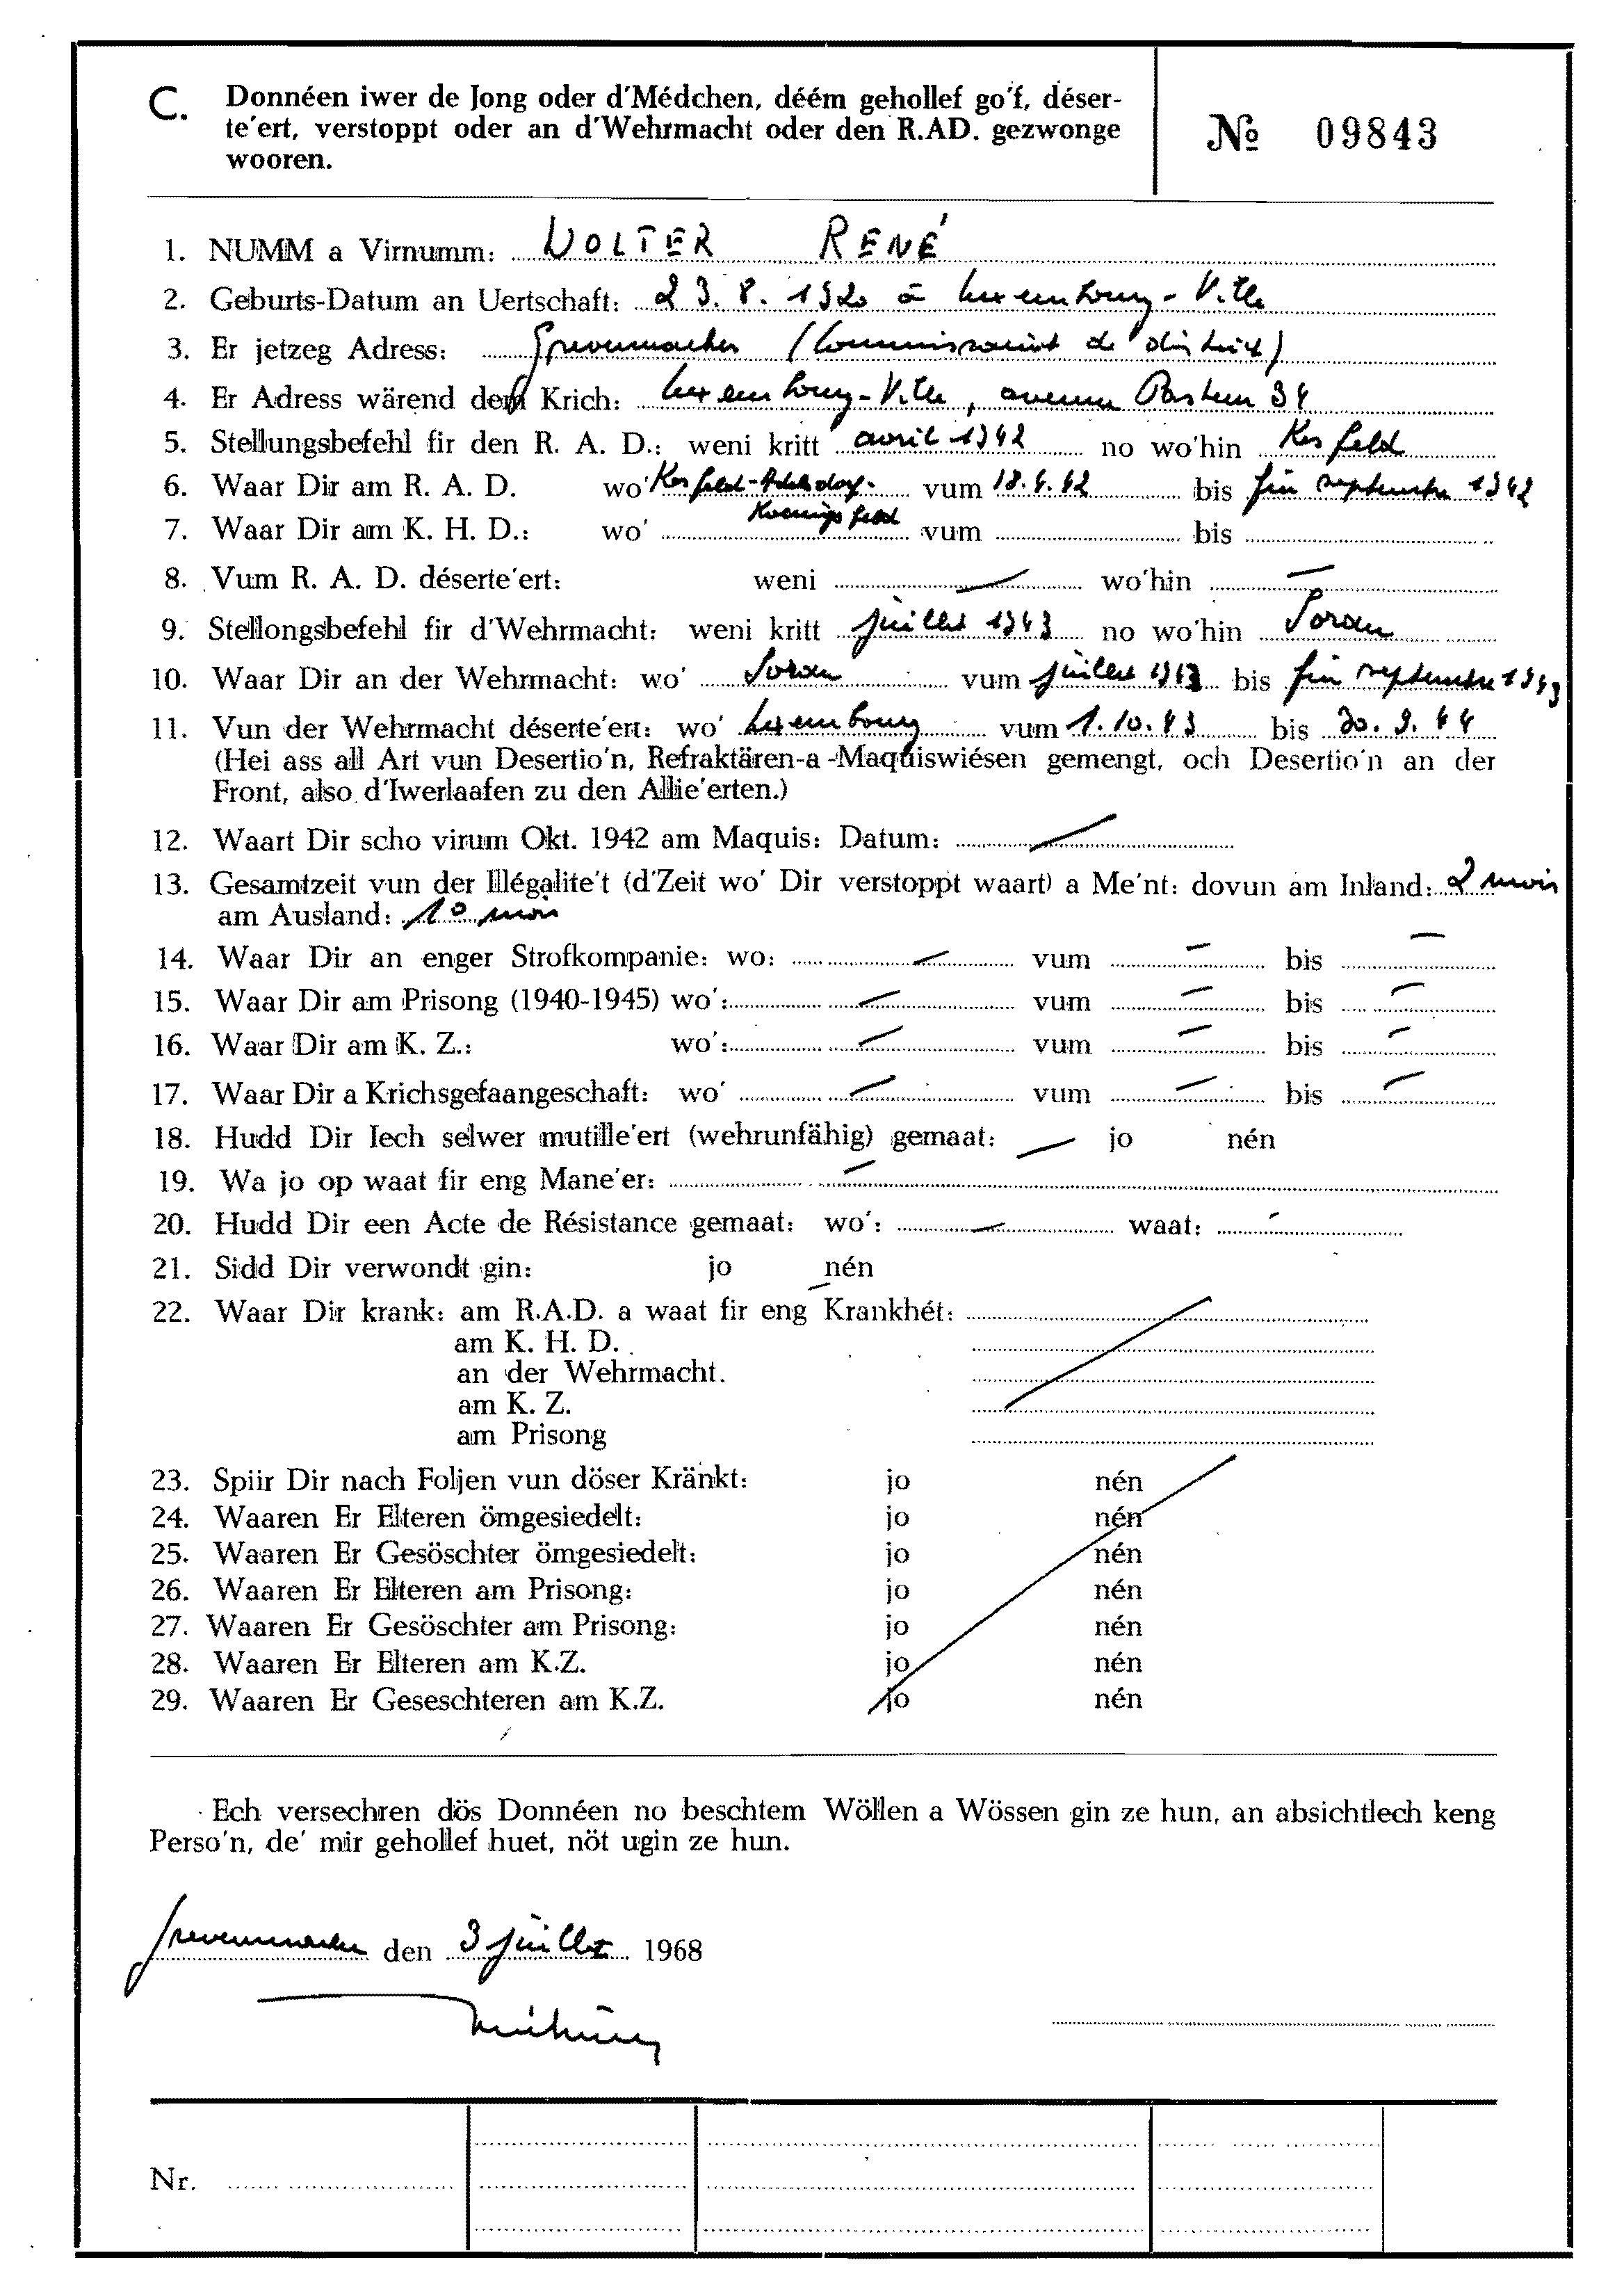 C. Donnéen iwer de Jong oder d'Médchen, déém gehollef go'f, déser-
te'ert, verstoppt oder an d'Wehrmacht oder den R.AD. gezwonge
wooren.
№ 09843
1. NUMM a Virnumm: WOLTER RENÉ
2. Geburts-Datum an Uertschaft: 23.8.1920 à Luxembourg-Ville
3. Er jetzeg Adress: Grevenmacher (Commissariat de district)
4. Er Adress wärend dem Krich: Luxembourg-Ville, avenue Pasteur 34
5. Stellungsbefehl fir den R. A. D.: weni kritt avril 1942 no wo'hin Kesfeld
6. Waar Dir am R. A. D. wo' Kesfeld-Adelsdorf- vum 18.4.42 bis fin septembre 1942
Koenigsfeld
7. Waar Dir am K. H. D.: wo' vum bis
8. Vum R. A. D. déserte'ert: weni — wo'hin —
9. Stellongsbefehl fir d'Wehrmacht: weni kritt juillet 1943 no wo'hin Sorau
10. Waar Dir an der Wehrmacht: wo' Sorau vum juillet 1943 bis fin septembre 1943
11. Vun der Wehrmacht déserte'ert: wo' Luxembourg vum 1.10.43 bis 30.9.44
(Hei ass all Art vun Desertio'n, Refraktären-a -Maquiswiésen gemengt, och Desertio'n an der
Front, also d'Iwerlaafen zu den Allie'erten.)
12. Waart Dir scho virum Okt. 1942 am Maquis: Datum: —
13. Gesamtzeit vun der Illégalite't (d'Zeit wo' Dir verstoppt waart) a Me'nt: dovun am Inland: 2 mois
am Ausland: 10 mois
14. Waar Dir an enger Strofkompanie: wo: — vum — bis —
15. Waar Dir am Prisong (1940-1945) wo': — vum — bis —
16. Waar Dir am K. Z.: wo': — vum — bis —
17. Waar Dir a Krichsgefaangeschaft: wo' — vum — bis —
18. Hudd Dir Iech selwer mutille'ert (wehrunfähig) gemaat: — jo nén
19. Wa jo op waat fir eng Mane'er: —
20. Hudd Dir een Acte de Résistance gemaat: wo': — waat: —
21. Sidd Dir verwondt gin: jo nén
22. Waar Dir krank: am R.A.D. a waat fir eng Krankhét:
am K. H. D.
an der Wehrmacht.
am K. Z.
am Prisong
23. Spiir Dir nach Foljen vun döser Kränkt: jo nén
24. Waaren Er Elteren ömgesiedelt: jo nén
25. Waaren Er Gesöschter ömgesiedelt: jo nén
26. Waaren Er Elteren am Prisong: jo nén
27. Waaren Er Gesöschter am Prisong: jo nén
28. Waaren Er Elteren am K.Z. jo nén
29. Waaren Er Geseschteren am K.Z. jo nén
Ech versechren dös Donnéen no beschtem Wöllen a Wössen gin ze hun, an absichtlech keng
Perso'n, de' mir gehollef huet, nöt ugin ze hun.
Grevenmacher den 3 juillet 1968
Nr.